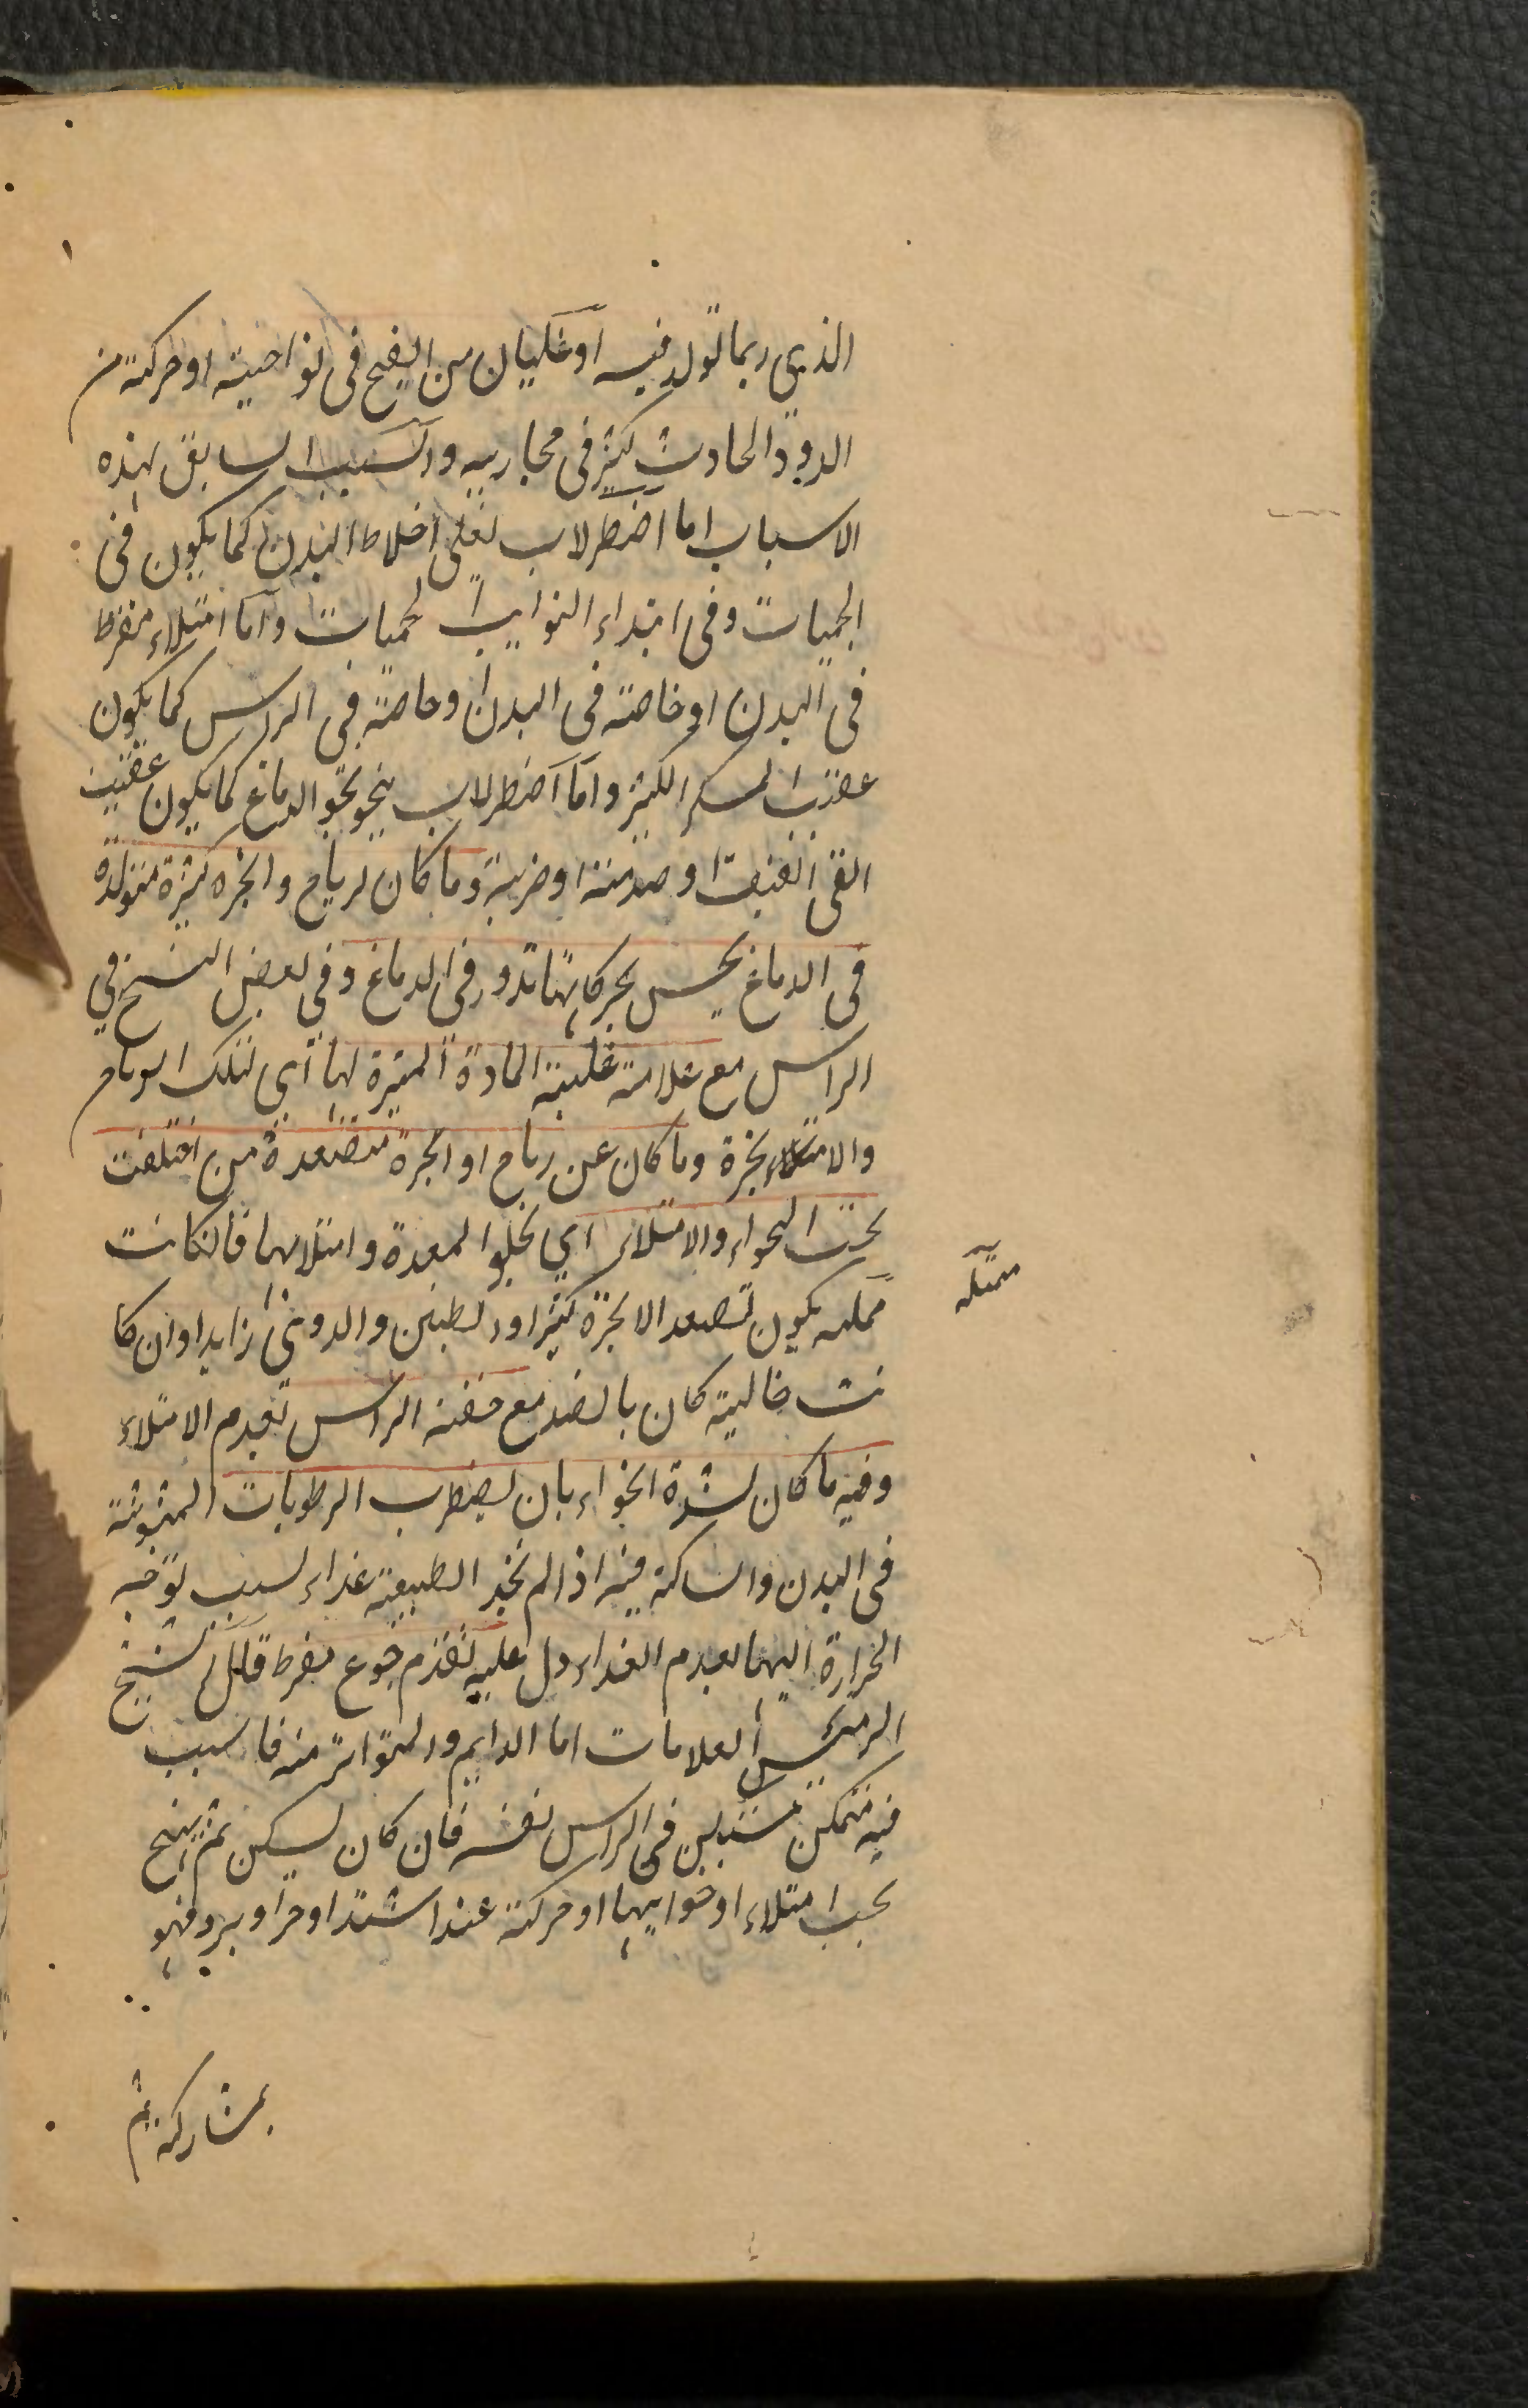 الذي ربما تولد فيه او غليان من القيح فى نواحيته او حركته من
الدود الحادث كثيرفى مجاريه والسبب السابق لهذه
الاسباب اما اضطراب تغلى اخلاط البدن كما يكون فى
الحميات وفى ابتداء النوايب لحميات واما امتلاء مفرط
فى البدن او خاصته فى البدن او خاصة فى الراس كما يكون
عقيب السكر الكثير واما اضطراب ينحو نحو الدماغ كما يكون عقيب
القى العنيف او صدمته او ضربة وما كان لرياح وابخره كثيرة متولدة
فى الدماغ يحس بحركاتها تدور فى الدماغ وفى بعض النسخ فى
الراس مع علامته غلبته المادة المثيرة لها اي لتلك الرياح
والا بخرة وما كان عن رياح او ابخرة متصعدة من اختلفت
بحسب الخواء والامتلاء اي بخلو المعدة وامتلائها فانكانت
ممتله يكون تصعد الابخرة كثيرا والطنين والدوى زايدا وان كا
نت خالية كان بالضد مع خفته الراس تقدم الامتلاء
وفيه ما كان لشدة الخواء بان يضطرب الرطوبات المبثوثة
فى البدن والساكنة فيه اذا لم تجد الطبيعة غذاء لسبب توجه
الحرارة اليها لعدم الغذاء دل عليه تقدم جوع مفرط قال الشيخ
الرئيس العلامات اما الدايم والمتواتر منه فالسبب
فيه متمكن مستبين فى الراس نفسه فان كان يسكن ثم يهيج
بحسب امتلاء او خوايها او حركته عند اشتداد حر او برد فهو
بمشاركة ثم
ممتله